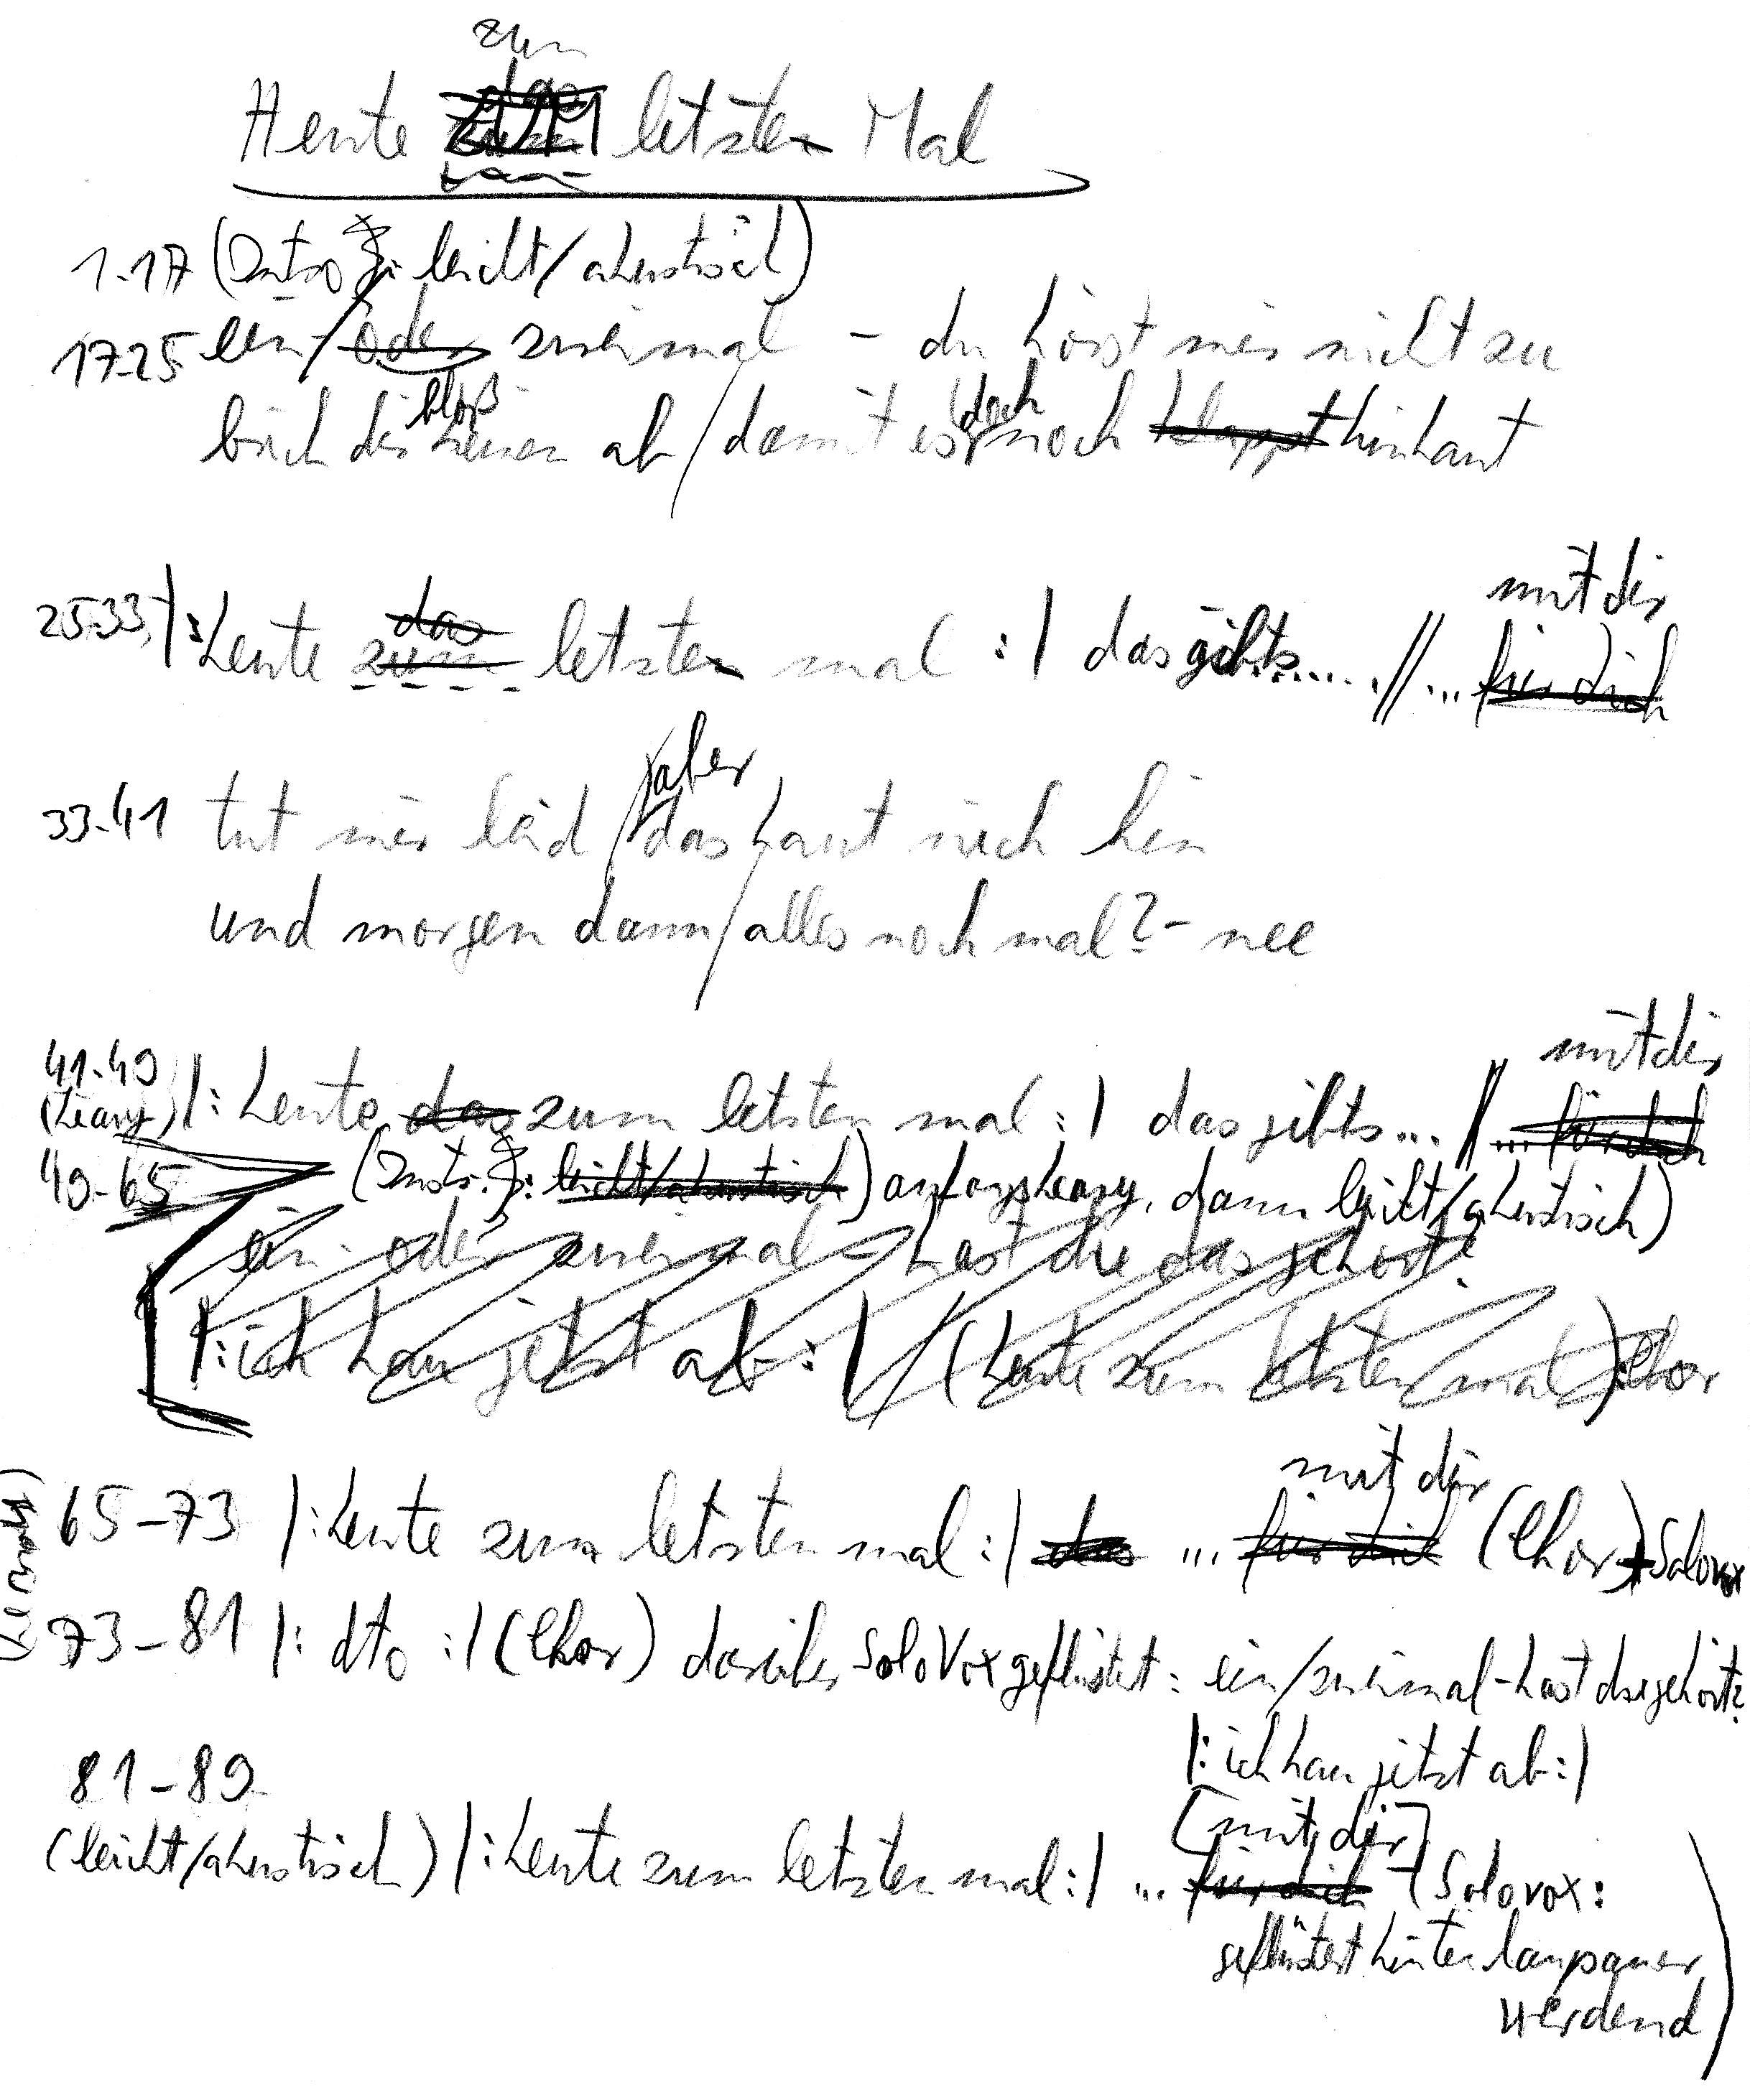 zum
Heute letzten Mal
1.-17 (Intro: leicht/akustisch)
17-25 ein/ oder zweimal - du hörst mir nicht zu
bloß doch
brich dir keinen ab / damit es noch klappt hinhaut
mit dir
25-33 |: heute zum das letzten mal :| das gibts..... // ... für dich
aber
33-41 tut mir leid / das haut nich hin
und morgen dann / alles noch mal? - nee
mit dir
41-49 |: heute das zum letzten mal :| das gibts... // ... für dich
(heavy)
49-65 (Instr.: leicht/akustisch) anfangs heavy, dann leicht/akustisch)
ein- oder zweimal - hast du das gehört?
|: ich hau jetzt ab :| / (heute zum letzten mal) Chor
mit dir
65-73 |: heute zum letzten mal :| das ... für dich (Chor) + Solovox
73-81 |: dto :| (Chor) darüber SoloVox geflüstert: ein/zweimal - hast du gehört?
|: ich hau jetzt ab :|
81-89 [mit dir]
(leicht/akustisch) |: heute zum letzten mal :| ... für dich (Solovox:
geflüstert hinten langsamer
werdend)